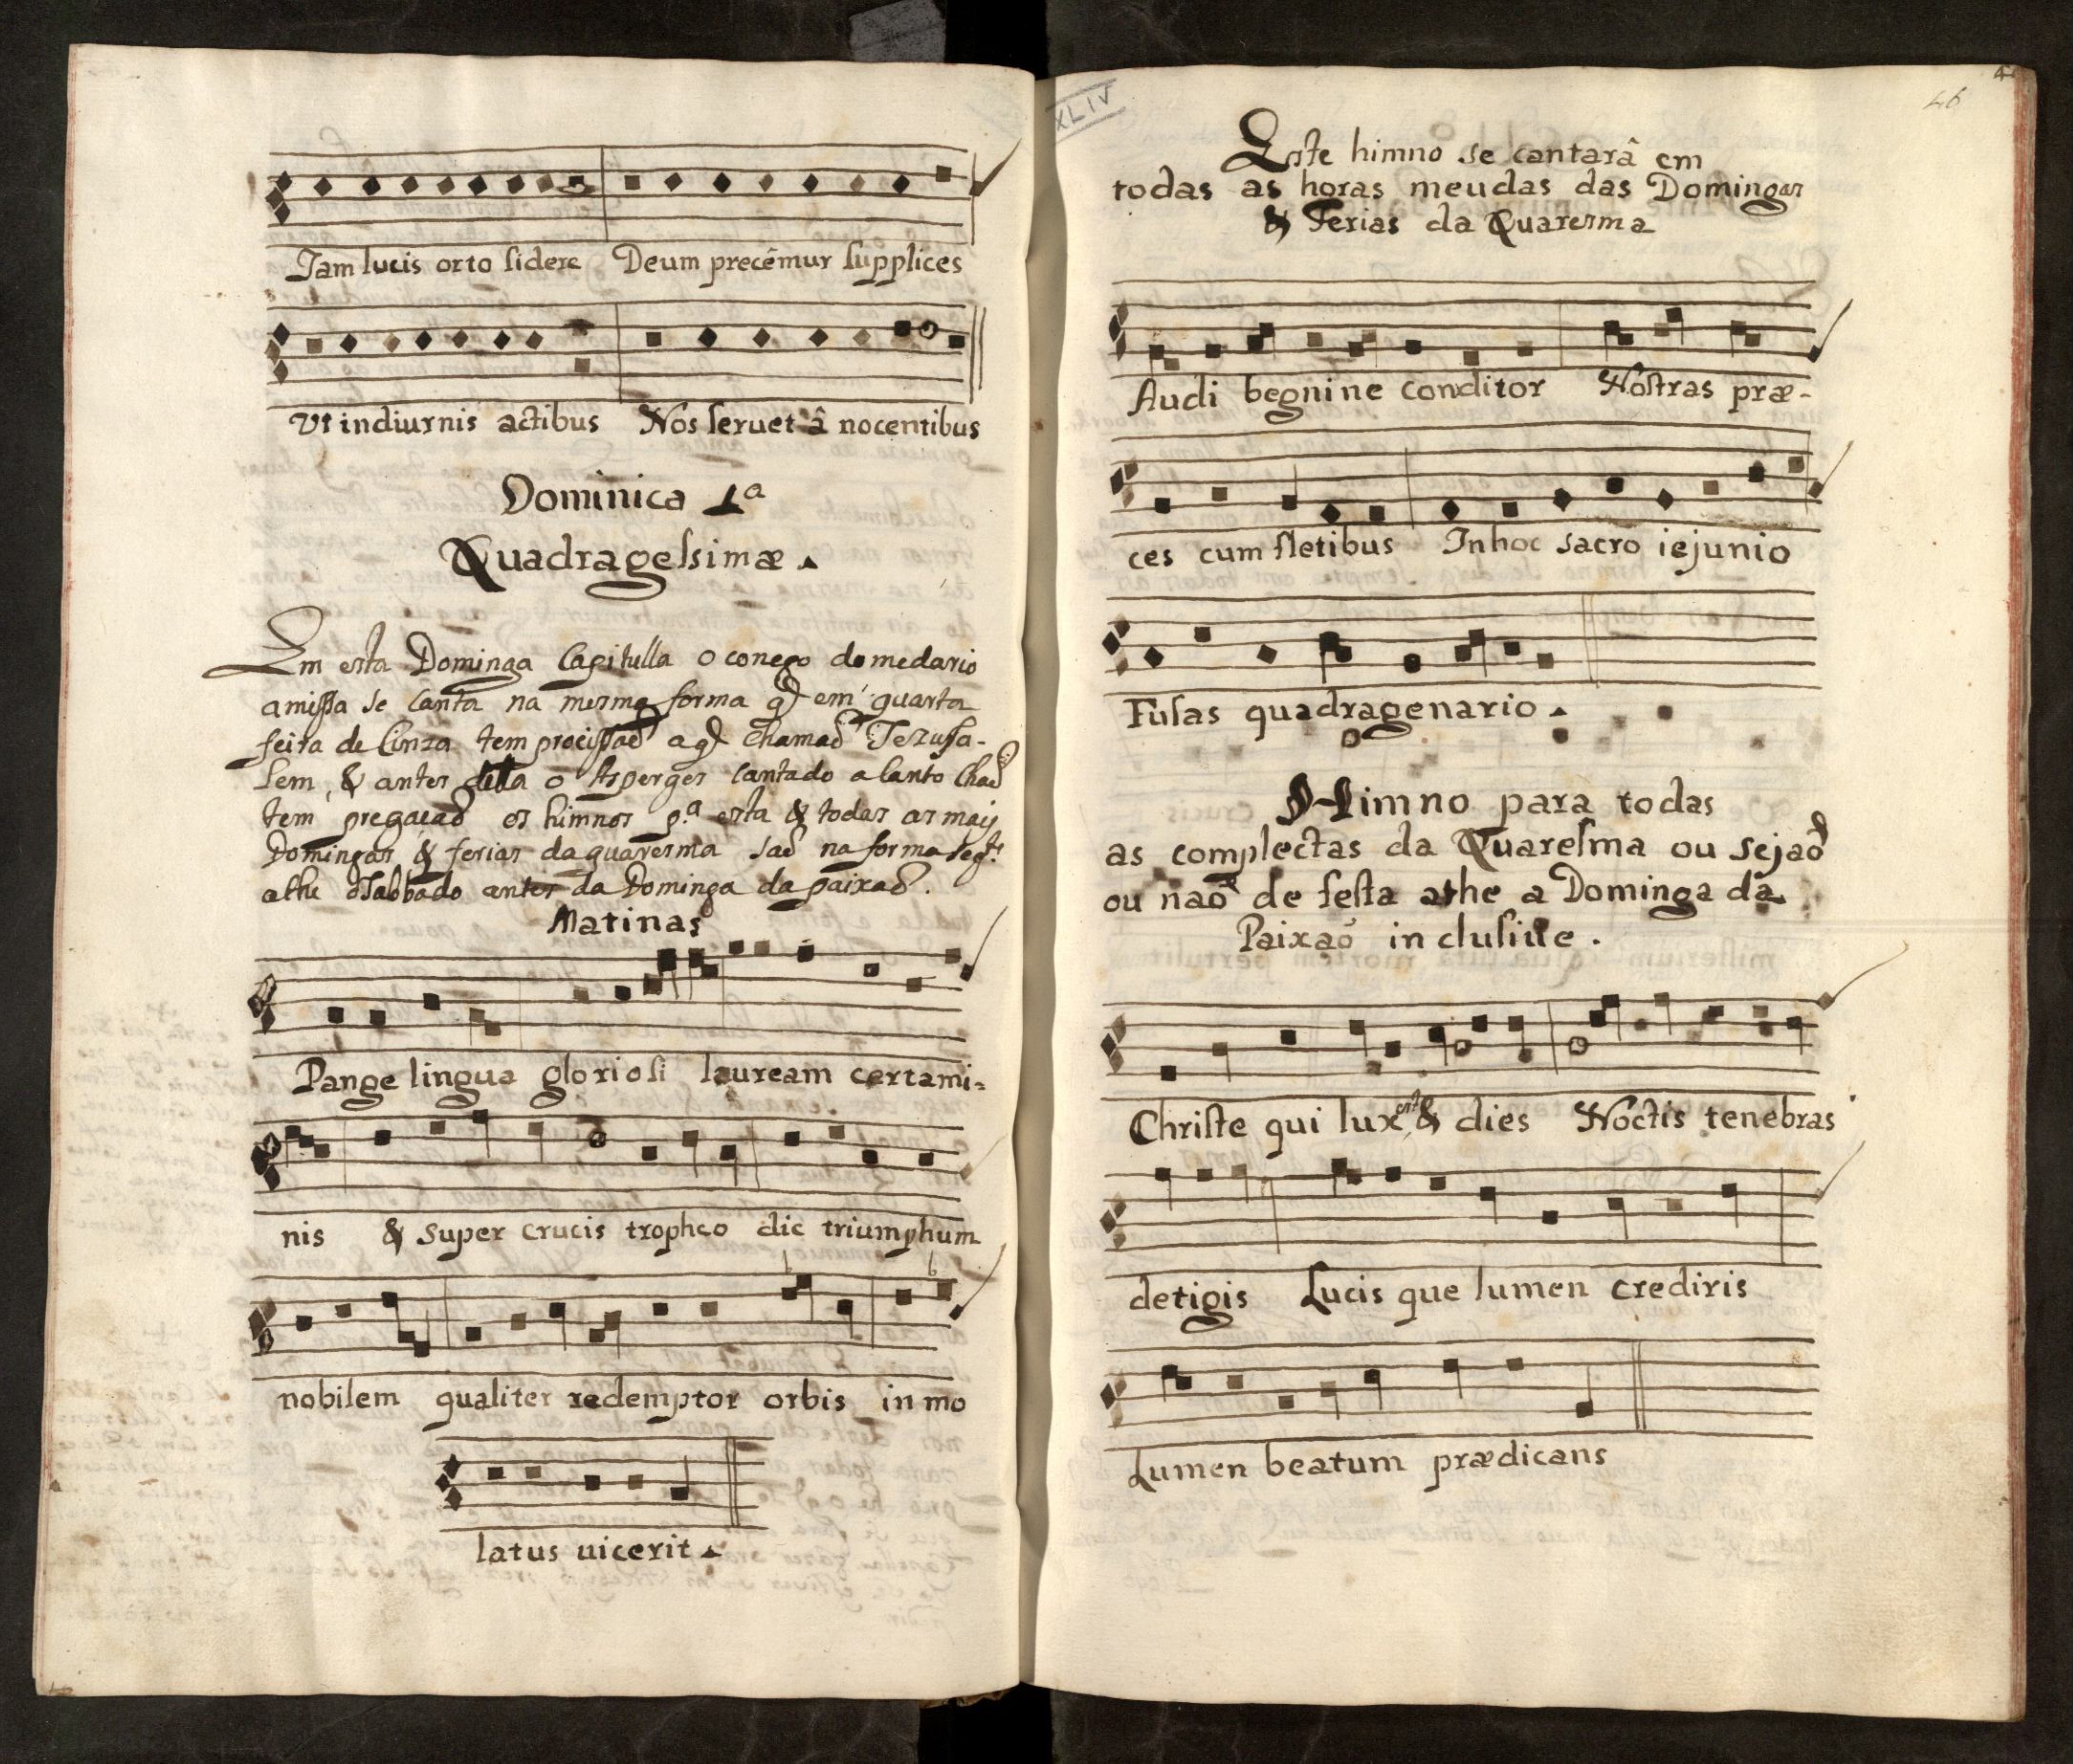 Jam lucis orto sidere Deum precêmur supplices
Ut indiurnis actibus Nos seruet â nocentibus
Dominica 1ª
Quadragesimæ
Em esta Dominga Capitulla o conego domedario
a missa se canta na mesma forma q̃ em quarta
feira de Cinza tem procissaõ a q̃ chamaõ Jerusa-
lem, & antes della o Asperges cantado a Canto Chaõ
tem pregacaõ os himnos p.ª esta & todas as mais
Domingas & ferias da quaresma saõ na forma seg.te
athe o Sabbado antes da Dominga da paixaõ.
Matinas
Pange lingua gloriosi lauream certami-
nis & super crucis tropheo dic triumphum
nobilem qualiter redemptor orbis in mo
latus uicerit
XLIV
46
Este himno se cantarâ em
todas as horas meudas das Domingas
& Ferias da Quaresma
Audi begnine conditor Nostras præ-
ces cum fletibus In hoc sacro iejunio
Fusas quadragenario
Himno para todas
as complectas da Quaresma ou sejaõ
ou naõ de festa athe a Dominga da
Paixaõ inclusiue.
Christe qui lux est & dies Noctis tenebras
detigis Lucis que lumen crediris
Lumen beatum prædicans